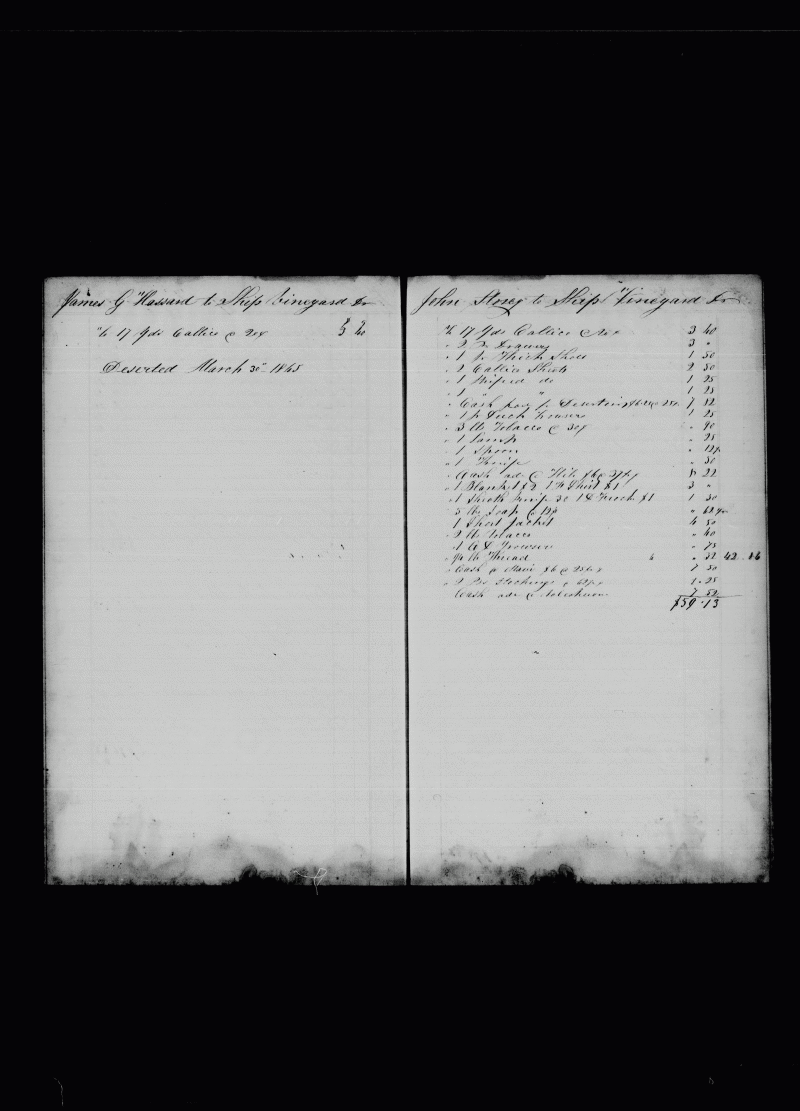 James G Hassard to Ship Vineyard Dr
To 17 Yds Callico @ 20¢ 3 40
Deserted March 30th 1845
John Storey to Ship Vineyard Dr
To 17 Yds Callico @ 20¢ 3 40
" 2 Pr Drawers 3 "
" 1 Pr Thick Shoes 1 50
" 2 Callico Shirts 2 50
" 1 Striped do 1 25
" 1 " " 1 25
" Cash for Deserting 7 82
" 1 Pr Duck Trousers 1 25
" 3 lb Tobacco @ 30¢ " 90
" 1 " 25
" 1 Spoon " 12½
" 1 Knife " 30
" Cash adv @ Hilo $6 @ 37½¢ 8 22
" 1 Blanket $2 1 Shirt $1 3 "
" 1 Sheath Knife 30 1 Frock $1 1 30
" 5 lb Soap @ 12½ " 62½
" 1 Short Jacket 4 50
" 2 lb Tobacco " 40
" 1 Trousers " 75
" lb Thread " 32 42 16
" Cash @ Maui $6 @ 25%¢ 7 50
" 2 Prs Stockings @ 62½¢ 1 25
Cash adv @ 7 50
$59.13